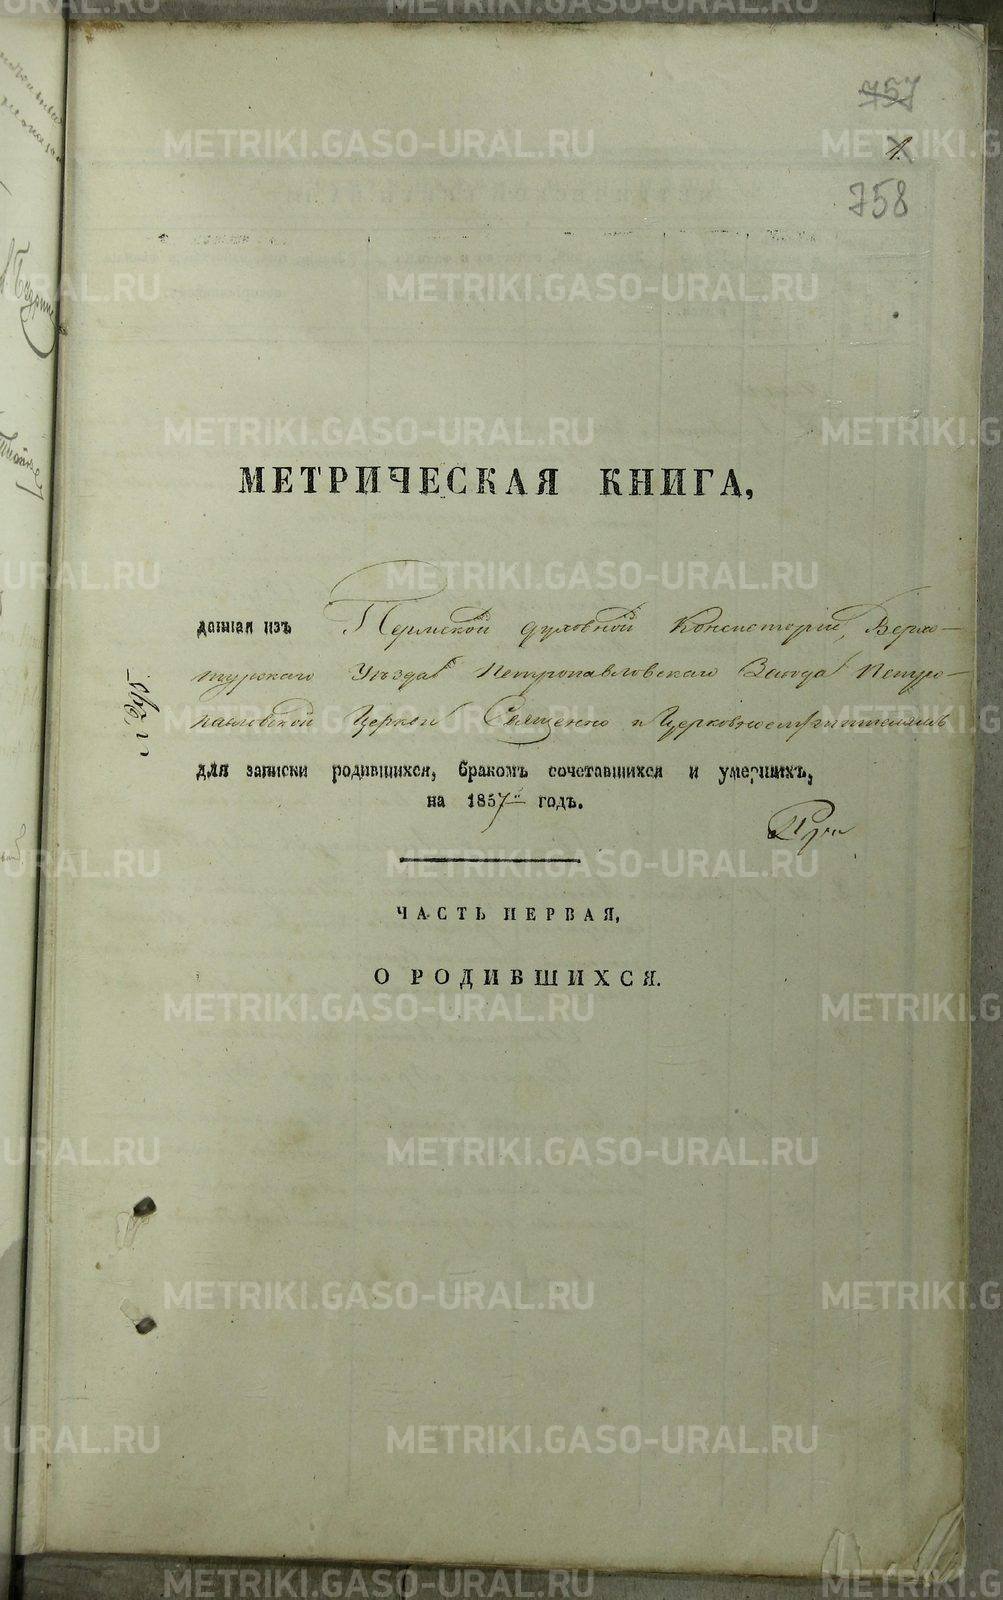 757
1.
758
МЕТРИЧЕСКАЯ КНИГА,
данная изъ Пермской духовной Консисторіи, Верхо-
турскаго Уѣзда Петропавловскаго Завода Петро-
павловской Церкви Священно и Церковнослужителямъ
для записки родившихся, бракомъ сочетавшихся и умершихъ,
на 1857й годъ.
ЧАСТЬ ПЕРВАЯ,
О РОДИВШИХСЯ.
METRIKI.GASO-URAL.RU